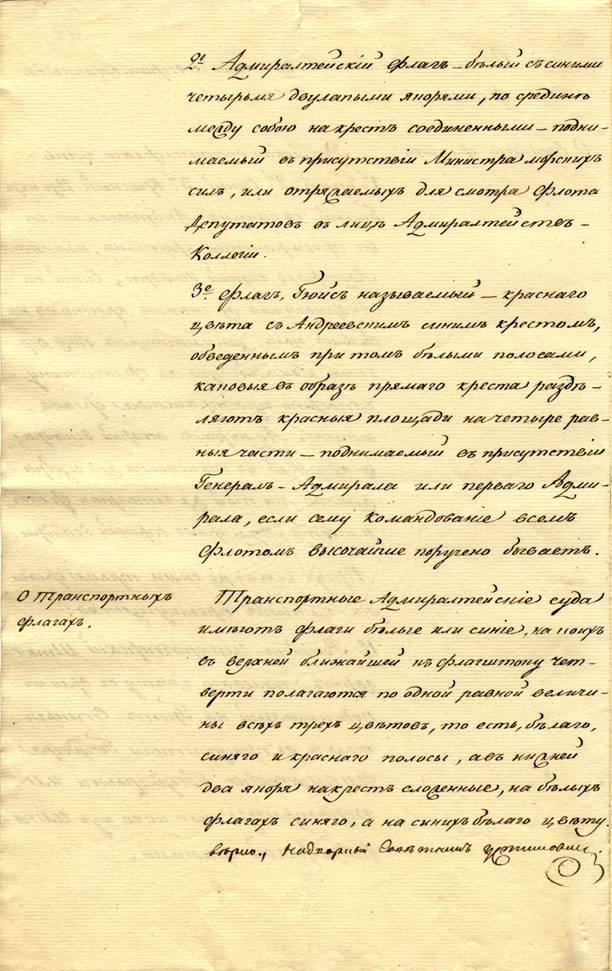 2й Адмиралтейскій флагъ – бѣлый съ синими
четырьмя двулапыми якорями, по срединѣ
между собою на крестъ соединенными – подни-
маемый въ присутствіи Министра морскихъ
силъ, или отряжаемыхъ для смотра Флота
Депутатовъ въ лицѣ Адмиралтействъ-
Коллегіи.
3е Флагъ, Гюйсъ называемый – краснаго
цвѣта съ Андреевскимъ синимъ крестомъ,
обведеннымъ при томъ бѣлыми полосами,
каковыя въ образѣ прямаго креста раздѣ-
ляютъ красныя площади на четыре рав-
ныя части – поднимаемый въ присутствіи
Генералъ-Адмирала или перваго Адми-
рала, если сему командованіе всемъ
флотомъ высочайше поручено бываетъ.
О Транспортныхъ
флагахъ.
Транспортные Адмиралтейскіе суда
имѣютъ флаги бѣлые или синіе, на коихъ
въ верхней ближайшей къ флагштоку чет-
верти полагаются по одной равной величи-
ны всѣхъ трехъ цвѣтовъ, то есть, бѣлаго,
синяго и краснаго полосы, а въ нижней
два якоря на крестъ сложенные, на бѣлыхъ
флагахъ синяго, а на синихъ бѣлаго цвѣту.
Вѣрно, Надворный Совѣтникъ